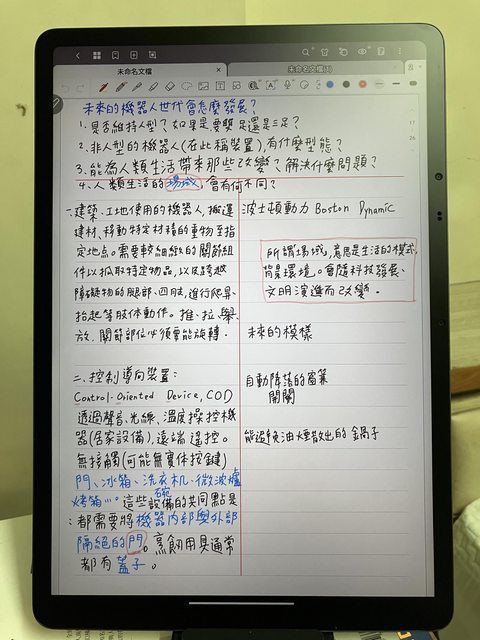 未命名文檔
未命名文檔(1)
未來的機器人世代會怎麼發展？
1. 是否維持人型？如果是要雙足還是三足？
2. 非人型的機器人(在此稱裝置),有什麼型態？
3. 能為人類生活帶來那些改變？解決什麼問題？
4. 人類生活的場域,會有何不同？
一. 建築、工地使用的機器人,搬運
建材、移動特定材積的重物至指
定地點。需要較細緻的關節組
件以抓取特定物品,以及跨越
障礙物的腿部、四肢,進行爬昇、
抬起等肢体動作。推、拉、舉、
放,關節部位必須要能旋轉.
二. 控制導向裝置：
Control-Oriented Device, COD
透過聲音、光線、溫度操控機
器(居家設備),遠端遙控。
無接觸(可能無實体按鍵)
門、冰箱、洗衣机、微波爐
烤箱…。這些設備的共同點是
：都需要將機器內部與外部
隔絕的門。烹飪用具通常
都有蓋子。
波士頓動力 Boston Dynamic
所謂場域,意思是生活的模式,
背景環境。會隨科技發展、
文明演進而改變。
未來的模樣
自動降落的窗簾
開關
能過濾油煙散出的鍋子